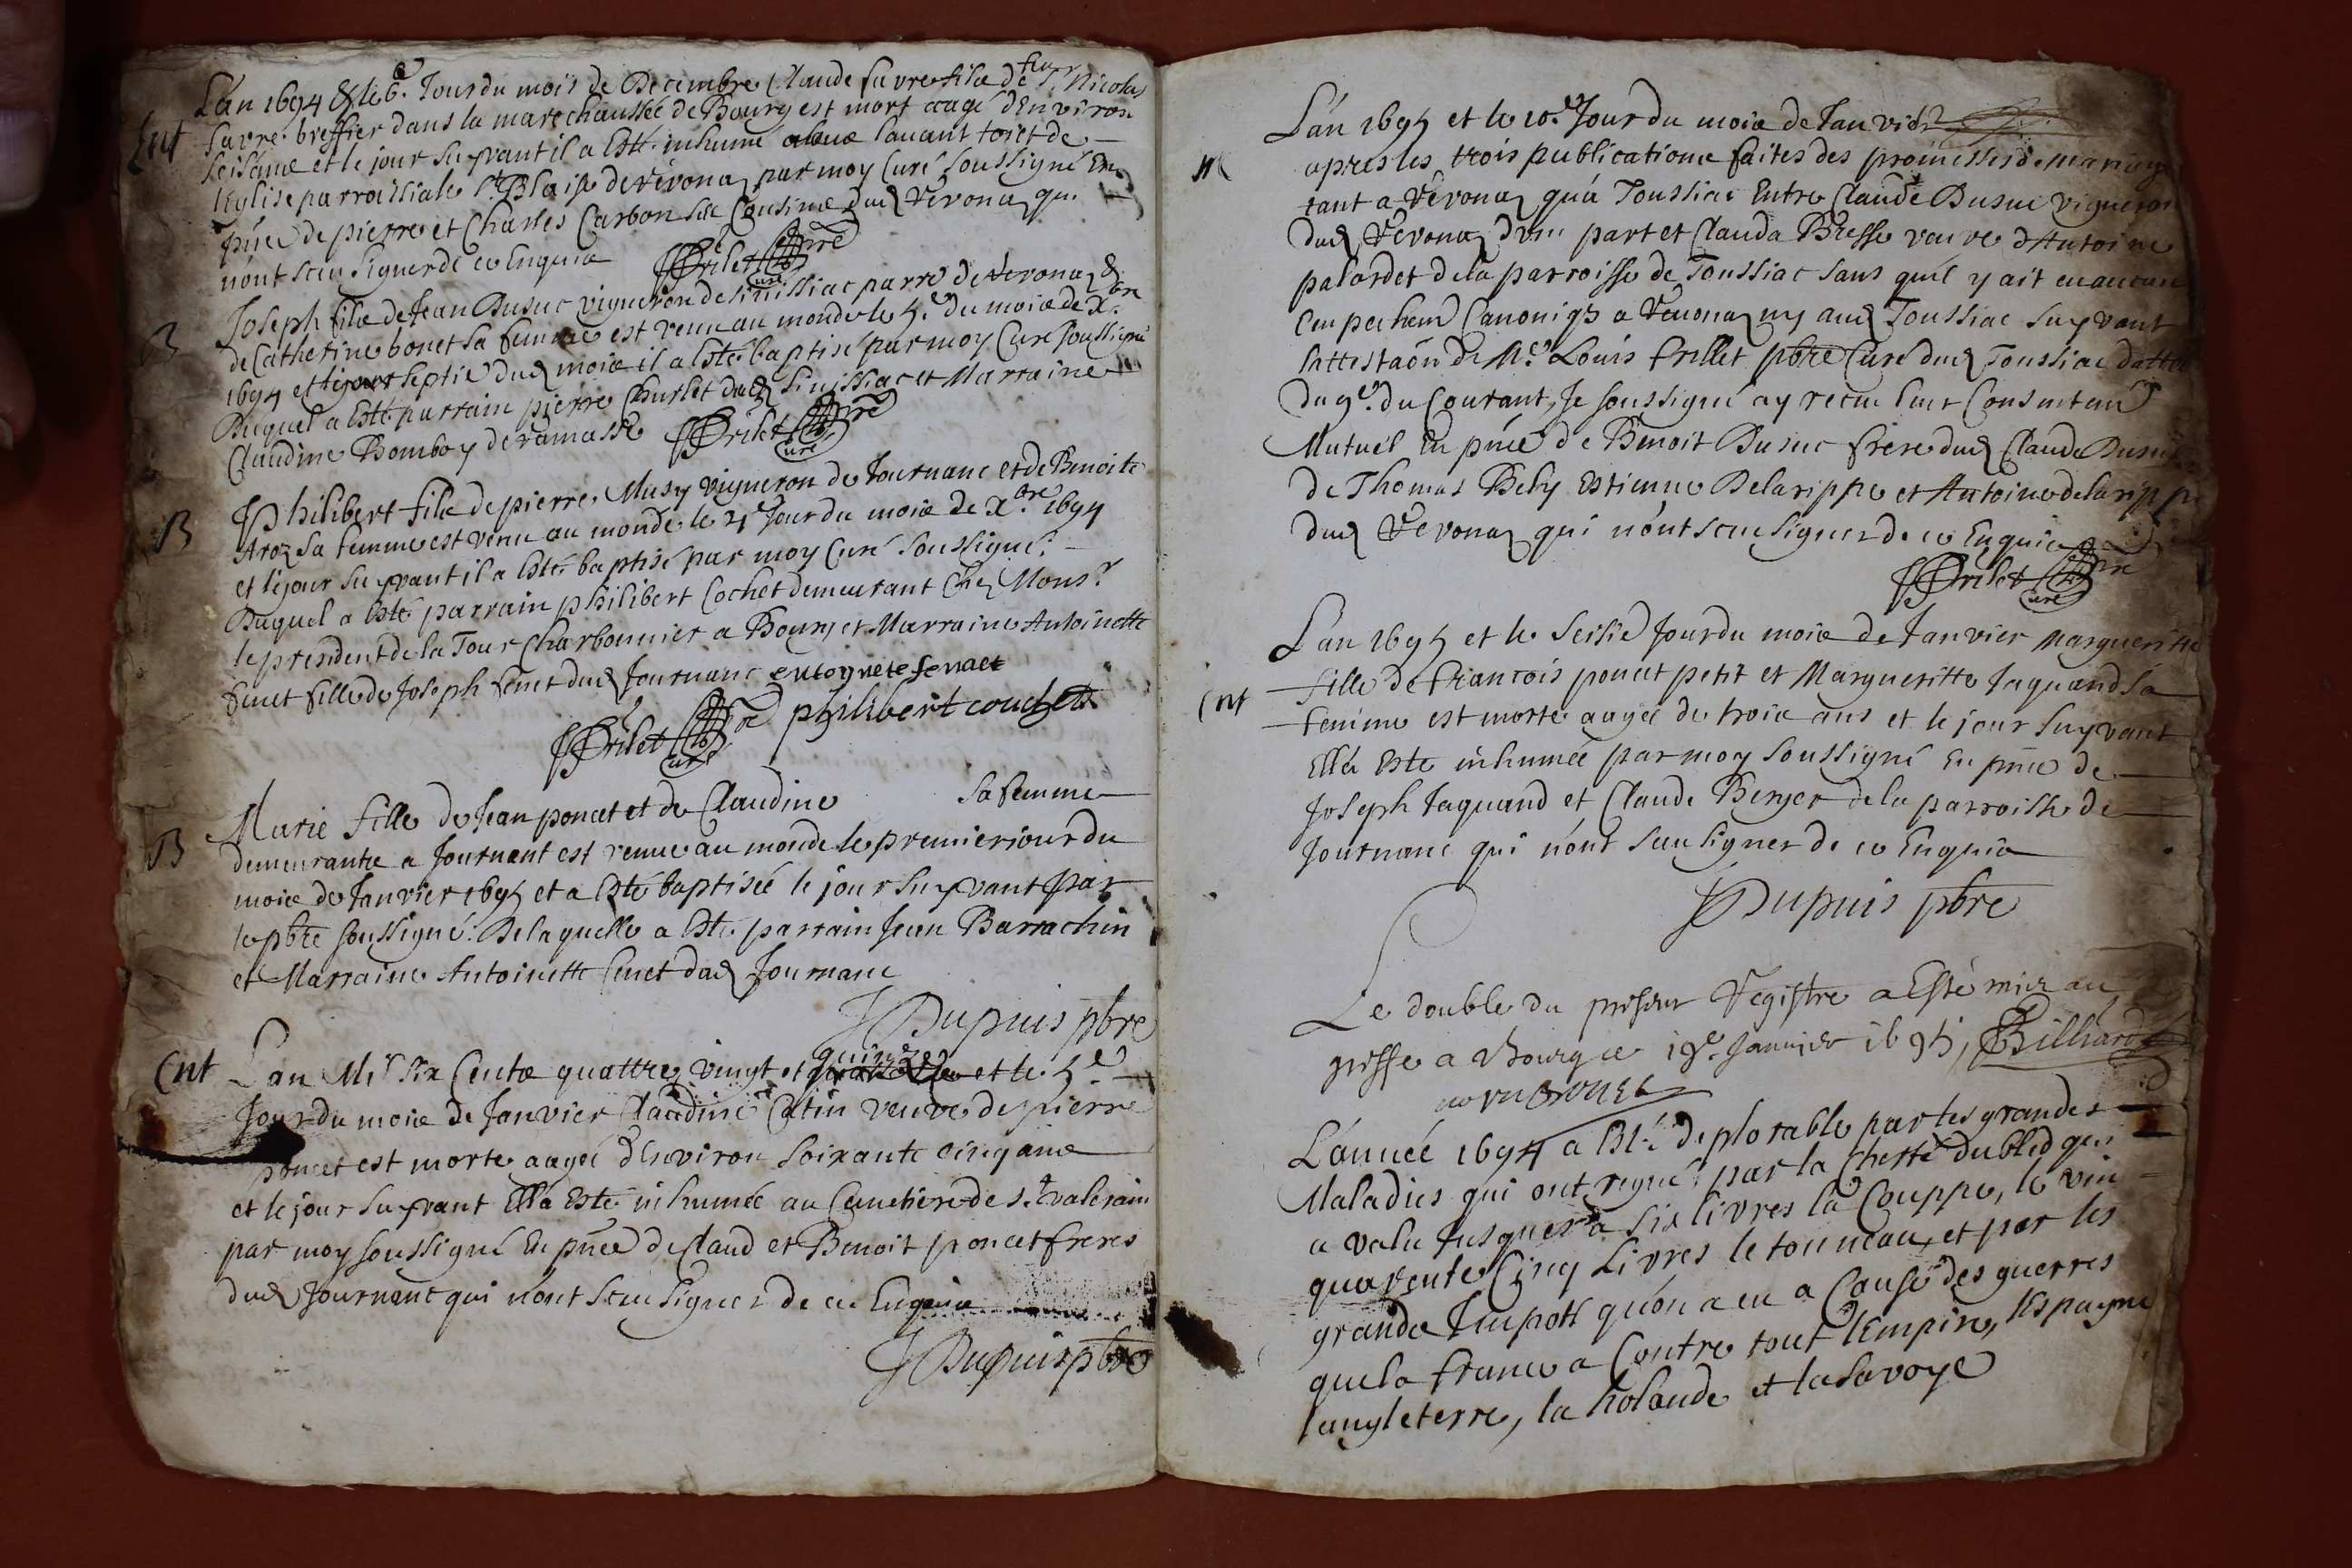 L'an 1694 & le 6.e Jour du mois de Decembre Claude favre fils de feu Sr Nicolas
Ent favre greffier dans la marechaussée de Bourg est mort aagé d'Environ
seis ans et le jour suyvant il a Esté inhumé soubs l'avant toict de
l'Eglise parroissiale St Blaise de révona par moy Curé soussigné En
pnce de pierre et Charles Carbon ses Cousins dud Révona qui
n'ont sceu signer de ce Enquis
FFrilet pbre Curé
B Joseph fils de Jean Busuc vigneron de sinissiac parre de Revona &
de Catherine bonet sa femme est venu au monde le 5.e du mois de Xbre
1694 et le septie dud mois il a Esté baptisé par moy Curé soussigné
Duquel a Esté parrain pierre Churlet dud sinissiac et Marraine
Claudine Bomboy de ramasse FFrilet pbre Curé
B Philibert fils de pierre Musy vigneron de Journanc et de Benoite
Aroz sa femme est venu au monde le 21e Jour du mois de Xbre 1694
et le jour suyvant il a Esté baptisé par moy Curé soussigné.
Duquel a Esté parrain philibert Cochet demeurant Chez Monsr
le president de la Tour Charbonnier a Bourg et Marraine Antoinette
fenet fille de Joseph fenet dud Journanc entoynete fenaet
FFrilet pbre Curé philibert couchet
B Marie fille de Jean poncet et de Claudine sa femme
demeurante a Journant est venue au monde le premier jour du
mois de Janvier 1695 et a Esté baptisée le jour suyvant par
le pbre soussigné. De laquelle a Esté parrain Jean Barrachin
et Marraine Antoinette fenet dud Journanc
JDupuis pbre
Ent L'an Mil six Cents quattre vingt et quinze et le 5e
Jour du mois de Janvier Claudine Catin veuve de pierre
poncet est morte aagée d'Environ soixante cinq ans
et le jour suyvant Ell'a Esté inhumée au Cimetiere de St valerain
par moy soussigné En pnce de Claud et Benoit poncet freres
dud Journanc qui n'ont sceu signer de ce Enquis
JDupuis pbre
L'an 1695 et le 10.e Jour du mois de Janvier
M apres les trois publications faites des promesses de mariage
tant a Révona qu'a Toussiac Entre Claude Busuc vigneron
dud Révona d'une part et Clauda Bresse veuve d'Antoine
palordet de la parroisse de Toussiac sans qu'il y ait eu aucun
empechemt Canoniq3 a Révona ny aud Toussiac suyvant
l'attestaôn de Mre Louis frillet pbre Curé dud Toussiac dattée
du 9e. du Courant, Je soussigné ay receu leur Consentemt
Mutuel En pnce de Benoit Busuc frere dud Claude Busuc
de Thomas Beby Estienne Delarippe et Antoine delarippe
dud Révona qui n'ont sceu signer de ce Enquis
FFrilet pbre Curé
L'an 1695 et le seisie Jour du mois de Janvier Margueritte
Ent fille de francois poncet petit et Margueritte Jaquand sa
femme est morte aagée de trois ans et le jour suyvant
Ell'a Esté inhumée par moy soussigné En pnce de
Joseph Jaquand et Claude Berger de la parroisse de
Journanc qui n'ont sceu signer de ce Enquis
JDupuis pbre
Le double du present Registre a Esté mis au
greffe a Bourg ce 19e Janvier 1695, Billiard
L'année 1694 a Esté deplorable par les grandes
Maladies qui ont regné par la Cherté du bled qui
a valu jusques a six livres la Couppe, le vin
quarente Cinq Livres le tonneau, et par les
grands Impots qu'on a eu a Cause des guerres
que la france a Contre tout l'Empire, l'Espagne
l'angleterre, la holande et la savoye